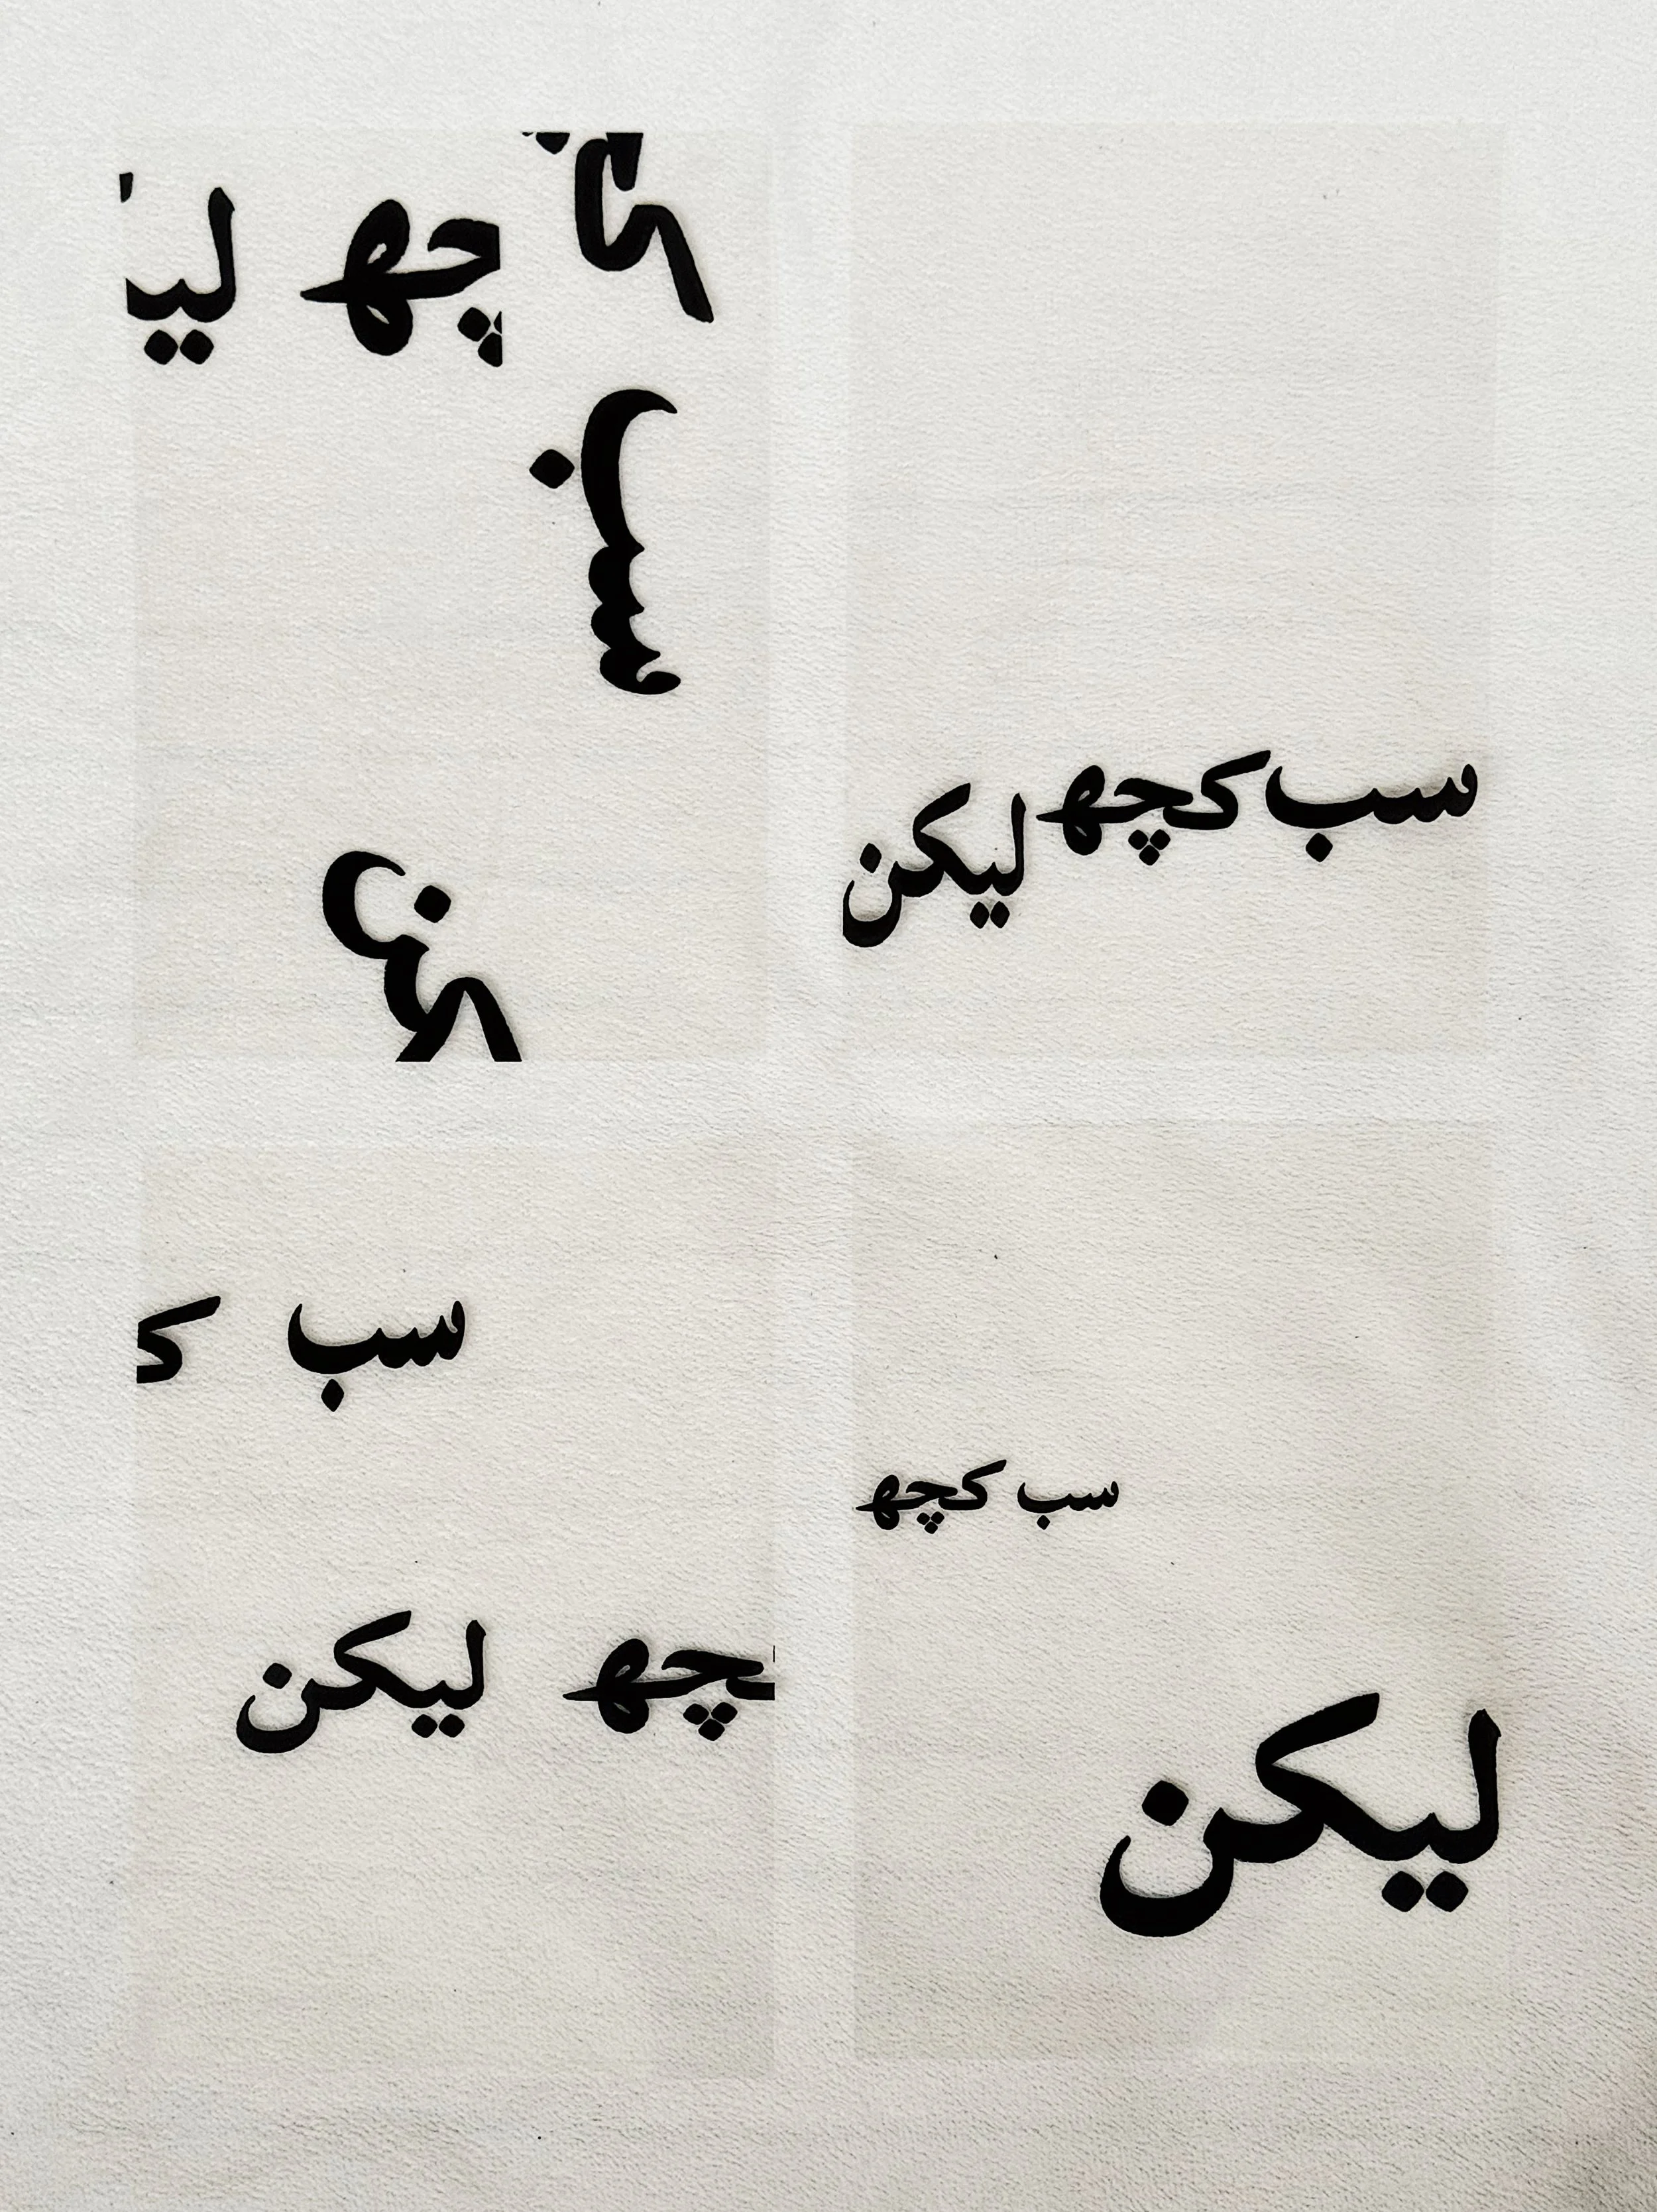 سب کچھ لیکن
سب ک
چھ لی
کن
سب کچھ
لیکن
سب ک
چھ لیکن